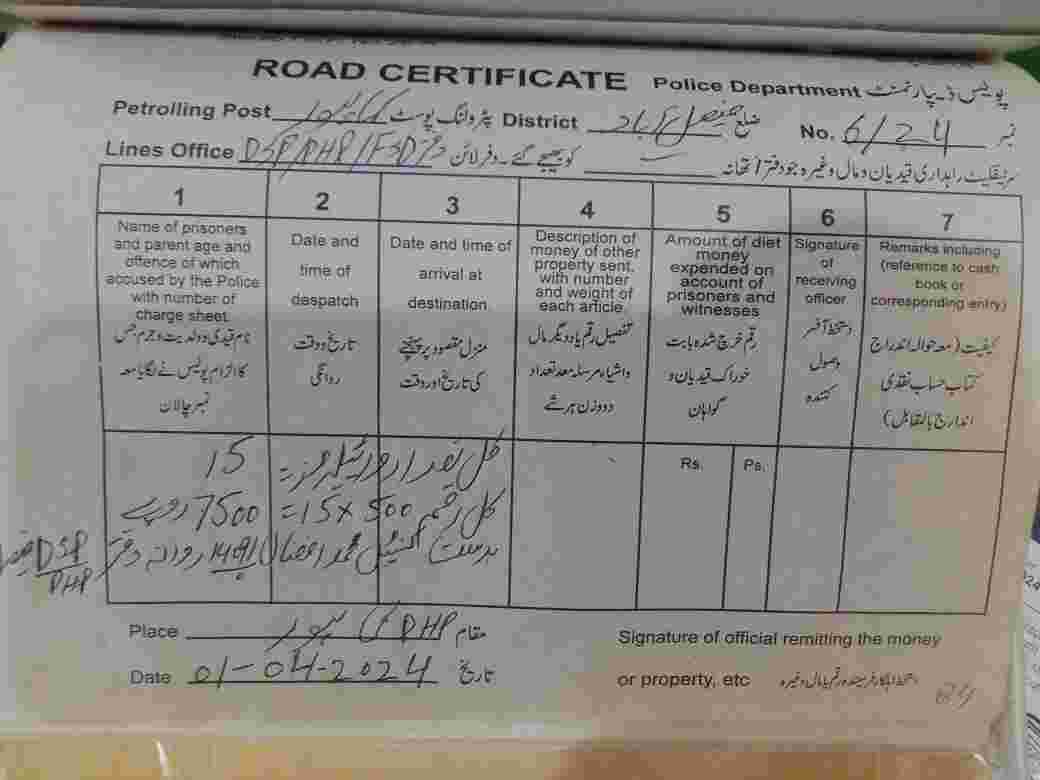 ROAD CERTIFICATE Police Department پولیس ڈیپارٹمنٹ
Petrolling Post پٹرولنگ پوسٹ District فیصل آباد ضلع No. 6/24 نمبر
Lines Office DSP/PHP/FSD دفتر کو بھیجے گئے۔ دفتر لائن سرٹیفکیٹ راہداری قیدیان و مال وغیرہ جو دفتر / تھانہ
1 2 3 4 5 6 7
Name of prisoners and parent age and offence of which accused by the Police with number of charge sheet.
نام قیدی و ولدیت و جرم جس کا الزام پولیس نے لگایا معہ نمبر چالان
Date and time of despatch
تاریخ و وقت روانگی
Date and time of arrival at destination
منزل مقصود پر پہنچنے کی تاریخ اور وقت
Description of money of other property sent. with number and weight of each article
تفصیل رقم یا دیگر مال و اشیاء مرسلہ معہ تعداد و وزن ہر شے
Amount of diet money expended on account of prisoners and witnesses
رقم خرچ شدہ بابت خوراک قیدیان و گواہان
Signature of receiving officer
دستخط آفسر وصول کنندہ
Remarks including (reference to cash book or corresponding entry)
کیفیت (معہ حوالہ اندراج کتاب حساب نقدی اندارج بالمقابل)
Rs. Ps.
کل تعداد = 15
کل رقم 500 × 15 = 7500 روپے
بدست کنسٹیبل محمد 1491 روانہ دفتر DSP PHP
Place PHP مقام
Date 01-04-2024 تاریخ
Signature of official remitting the money
or property, etc دستخط اہلکار فرستندہ رقم یا مال وغیرہ